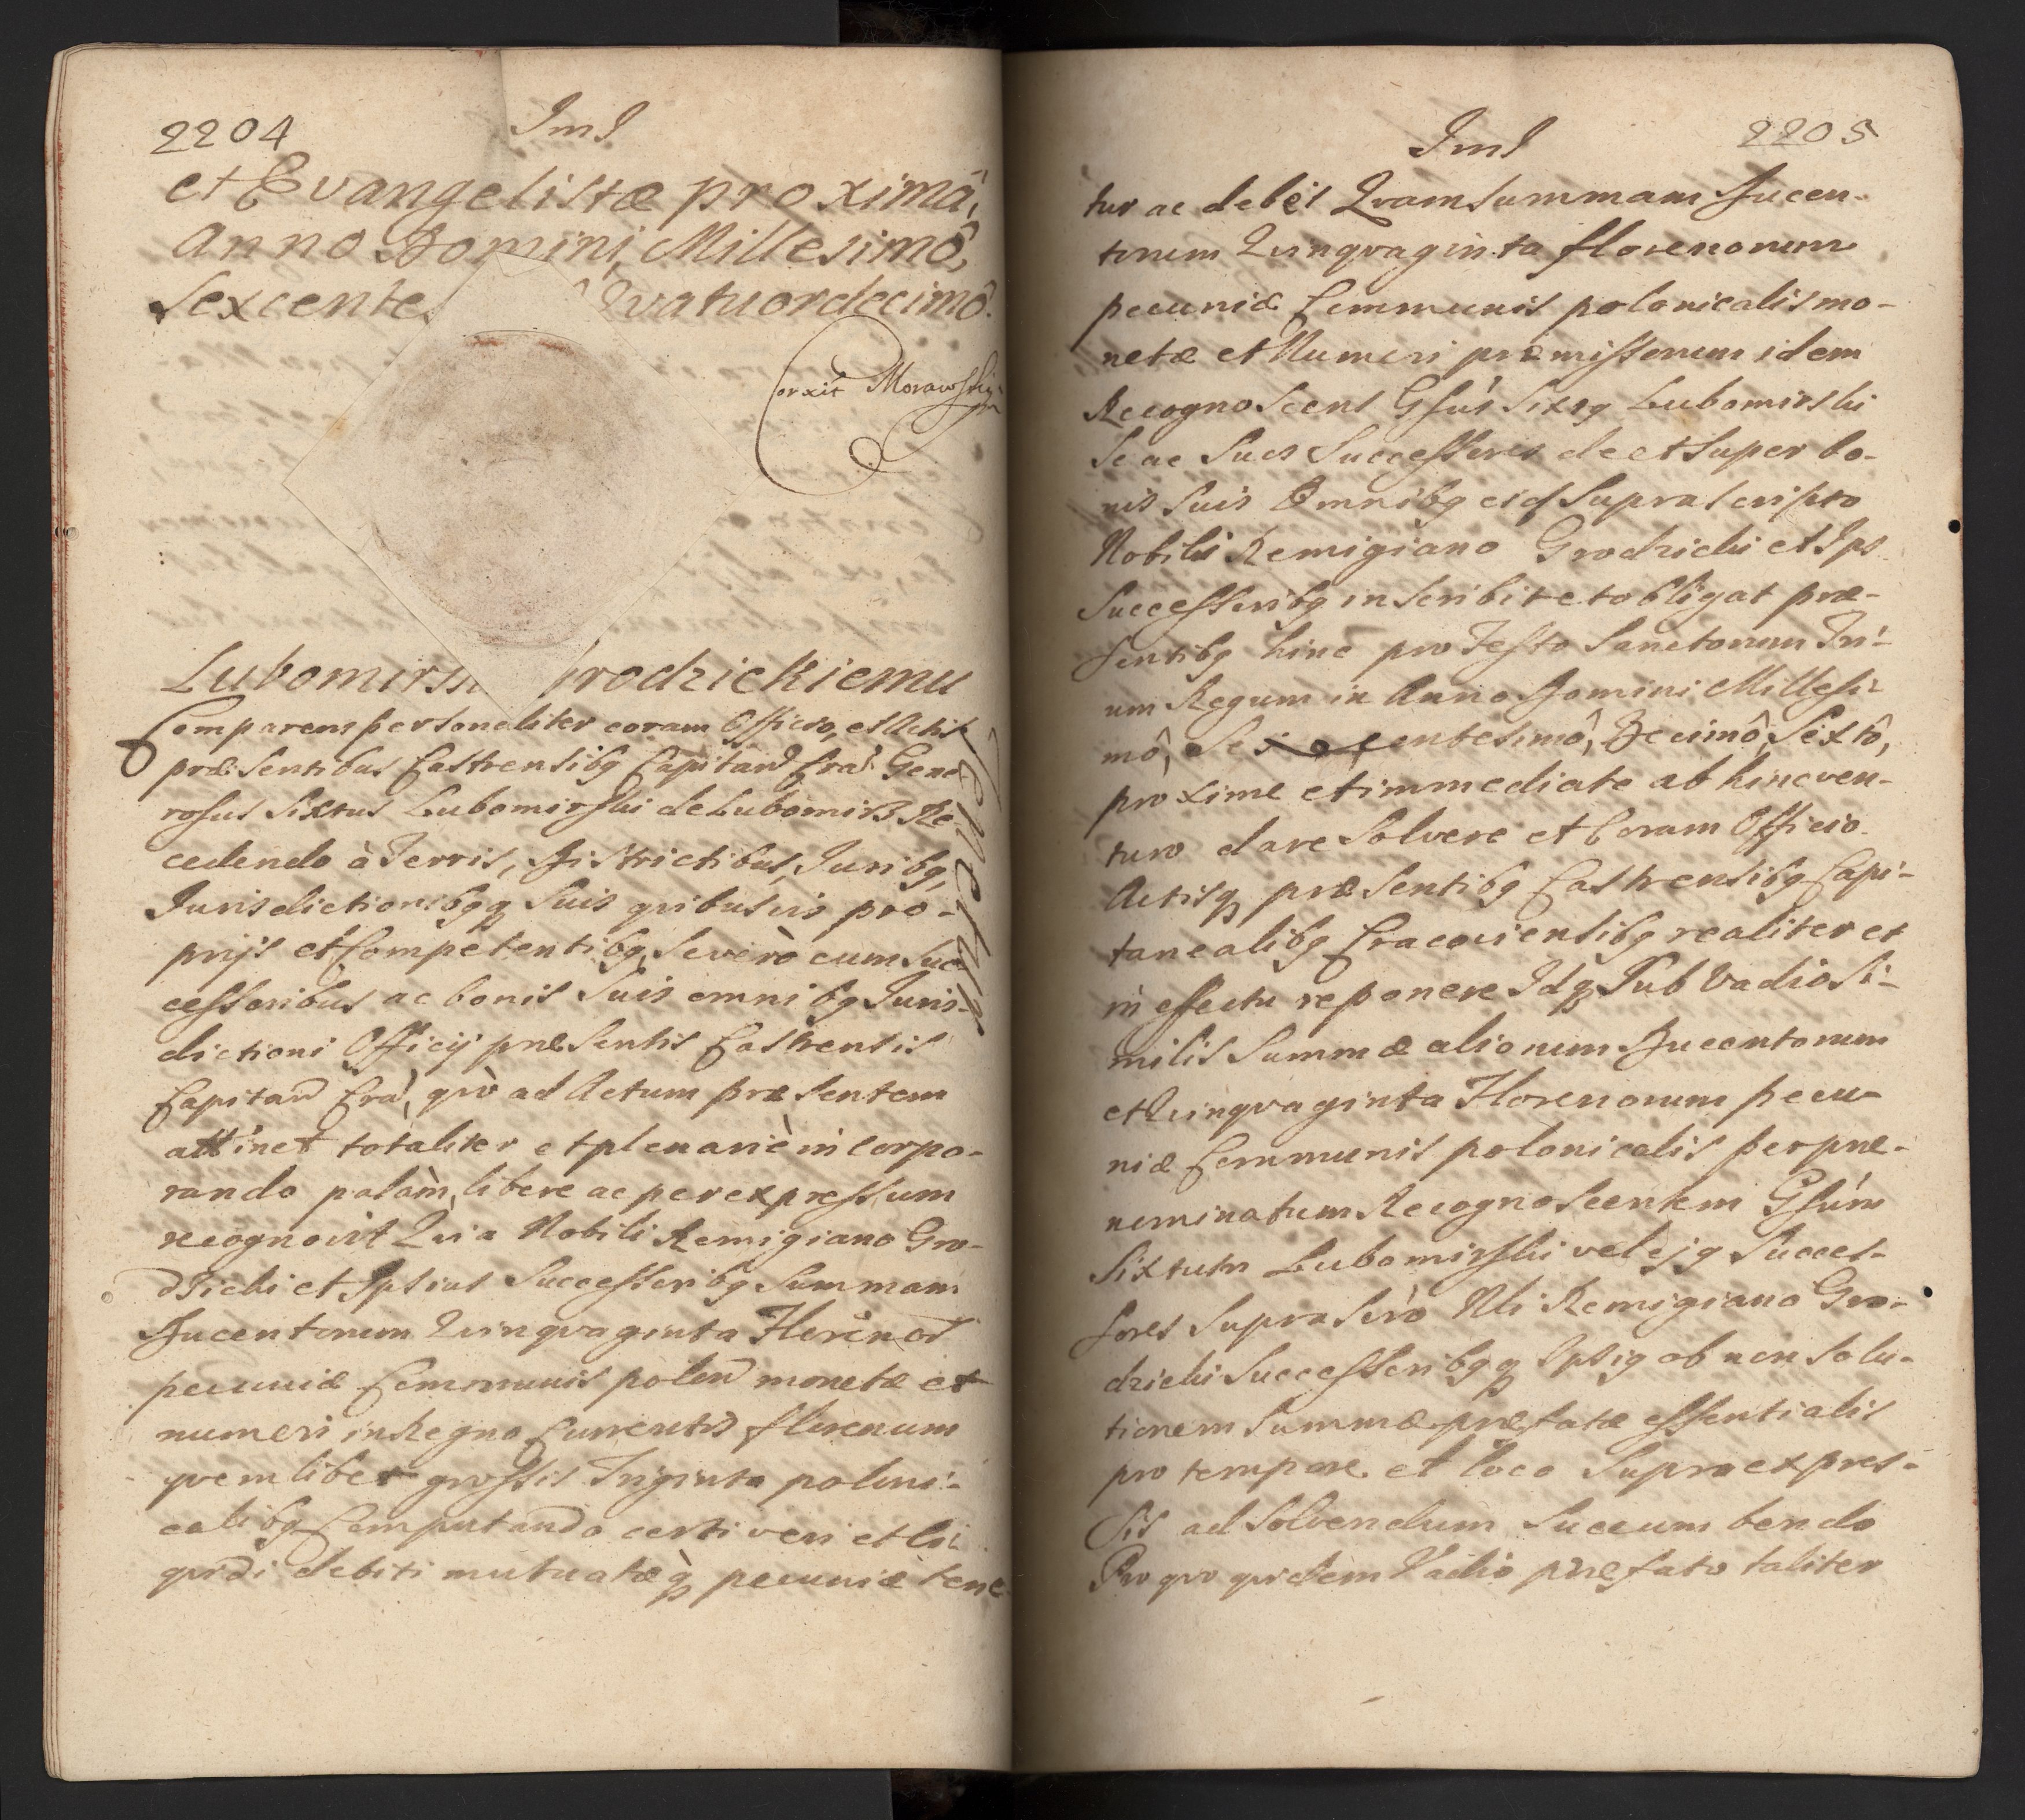 2204
Ind
et Evangelistæ proximâ,
Anno Domini Millesimô,
Sexcente Qvatuordecimô.
Corxit Morawski
Lubomirs rodzickiemu
Comparens personaliter coram Officio, et Actis
præsentibus Castrensibq Capitan Cra Gene
rosus Sixtus Lubomirski de Lubomirz Re
cedendo à Terris, Districtibus, Juribq,
Jurisdictionibqq Suis qvibusvis pro-
prijs et Competentibq Se verò cum Suc
cessoribus ac bonis Suis omnibq Juris-
dictioni Officij præsentis Castrensis
Capitan Cra, qvò ad Actum præsentem
attinet totaliter et plenariè incorpo-
rando palàm, libere ac per expressum
recognovit Qvia Nobili Remigiano Gro-
dzicki et Ipsius Successoribq Summam
Ducentorum Qvinqvaginta Floreno
pecuniæ Communis polon monetæ et
numeri in Regno Currentis florenum
qvemlibet grossis Triginta poloni-
calibq Computando certi veri et li
qvidi debiti mutuatæq pecuniæ tene
2205
Ind
tur ac debet Qvam Summam Ducen-
torum Qvinqvaginta florenorum
pecuniæ Communis polonicalis mo-
netæ et Numeri præmissorum idem
Recognoscens Gsus Sixtq Lubomirski
Se ac Suos Successores de et Super bo-
nis Suis Omnibq eid Suprascripto
Nobili Remigiano Grodzicki et Ips
Successoribq inscribit et obligat præ-
sentibq hinc pro Festo Sanctorum Tri-
um Regum in Anno Domini Millesi-
mô, Sexcentesimô, Decimô, Sextô,
proxime et immediate ab hinc ven-
turo dare Solvere et Coram Officio
Actisq præsentibq Castrensibq Capi-
tanealibq Cracoviensibq realiter et
in effectu reponere Idq Sub Vadio Si-
milis Summæ aliorum Ducentorum
et Qvinqvaginta Florenorum pecu-
niæ Communis polonicalis per præ-
nominatum Recognoscentem Gsum
Sixtum Lubomirski vel ejq Succes-
sores Suprascro Nli Remigiano Gro-
dzicki Successoribqq Ipsiq ob non Solu-
tionem Summæ præfatæ essentialis
pro tempore et loco Supra expres-
Sis ad Solvendum Succumbendo
Pro qvo qvidem Vadio præfato taliter